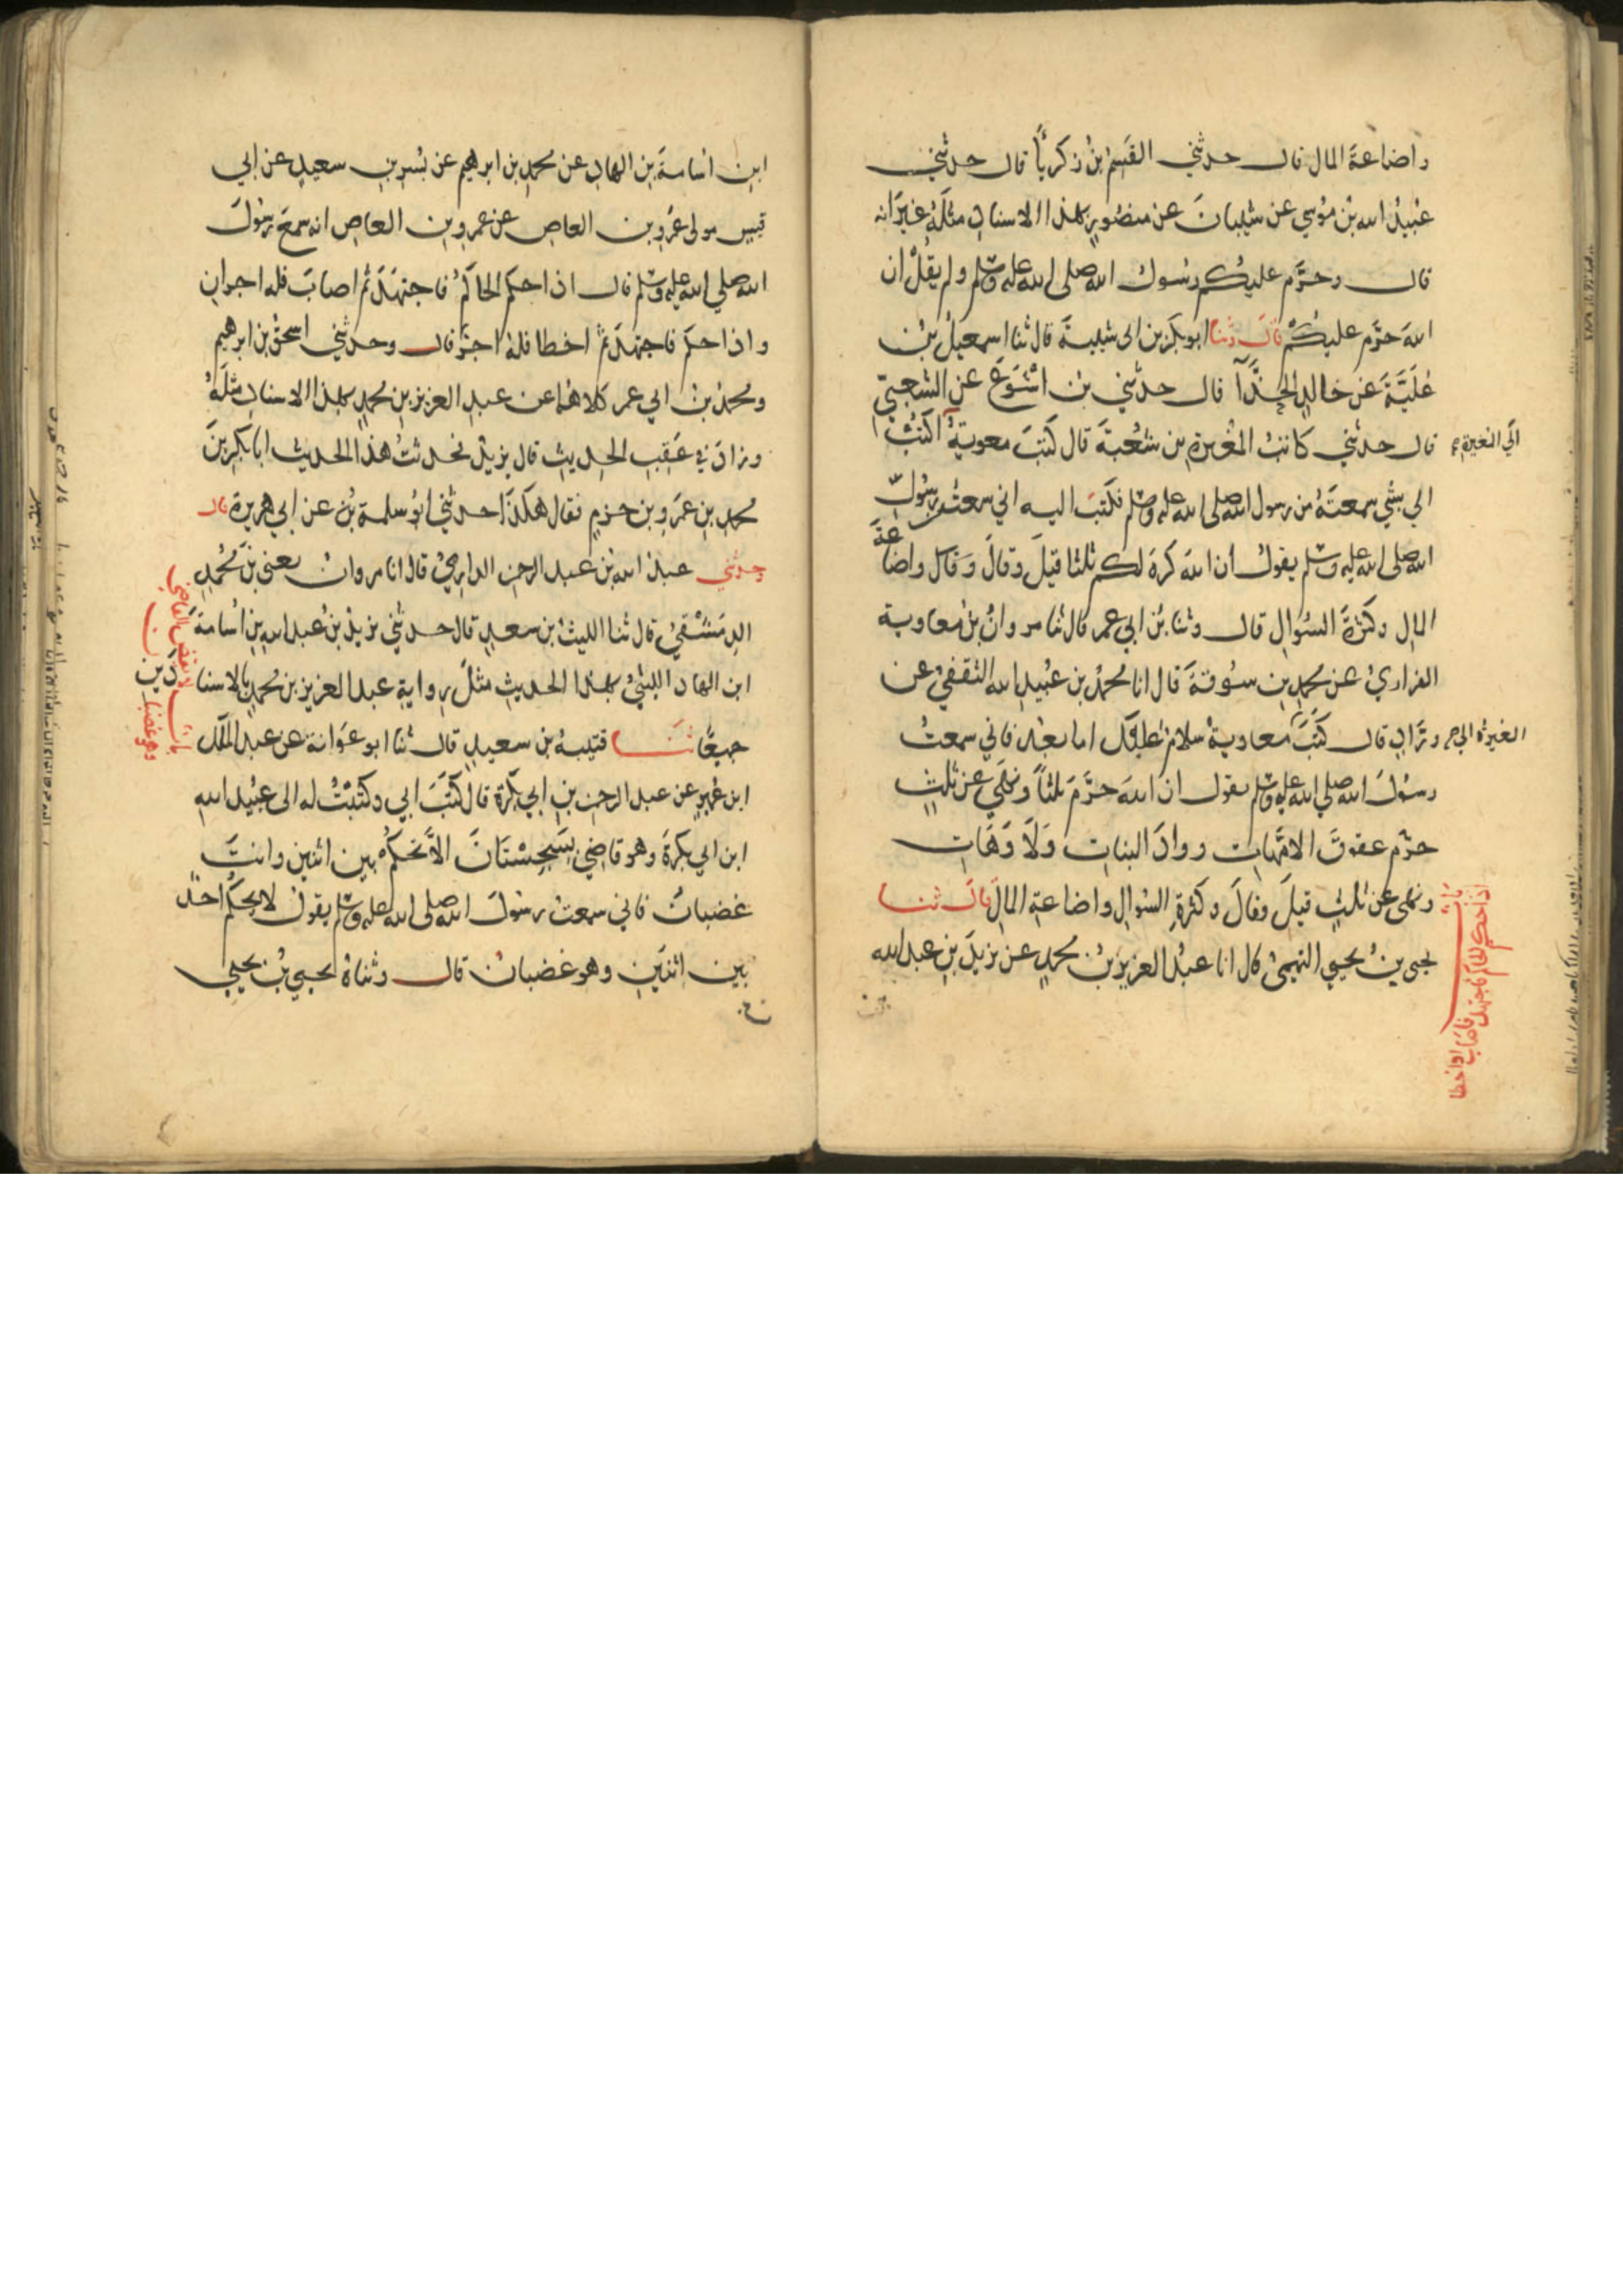 واضاعةَ المال قال حدثني القسم بنُ زكريّاَ قال حدثني
عُبيدُ الله بنُ مُوسي عن شيبانَ عن منصُورٍ بهذا الاسنادِ مثلَهُ غيرَ انه
قال وحرَّم عليكُم رسُول الله صلى الله عليه وسلم ولم يقُلْ ان
اللهَ حرَّم عليكُمْ قال وثنا ابو بكر بن ابى شيبةَ قال ثنا اسمعيلُ بنُ
عُلَيَّةَ عن خالدٍ الحذَّاءِ قال حدثني بن اشْوَعَ عن الشعبيّ
قال حدثني كاتبُ المُغيرةِ بن شُعْبَةَ قال كَتَبَ معويةُ اكتُبْ
الى المغيرة
الي بشيٍ سمعتَهُ من رسول الله صلى الله عليه وسلم فكتبَ اليه اني سمعتُ رسُولَ
الله صلى الله عليه وسلم يقولُ ان اللهَ كَرِهَ لكم ثلثا قيلَ وقالَ وقال واضاعةَ
المالِ وكثرةَ السُّوَالِ قال وثنا بنُ ابي عمر قال ثنا مروانُ بنُ معاوية
الفزاريُ عن محمدِ بنِ سُوقةَ قال انا محمدُ بن عُبيدِ الله الثقفيُ عن
ورَّادٍ قال كَتَبَ معاويةَ سلامٌ عليكَ اما بعْد فاني سمعتُ
المغيرةُ الى
رسُولَ الله صلي الله عليه وسلم يقول ان اللهَ حرَّمَ ثلثاً ونهَي عن ثلثٍ
حرَّم عقوقَ الامَّهاتِ ووادَ البناتِ وَلَا وَهَاتِ
ونهى عن ثلثٍ قيلَ وقالَ وكثرةِ السُوالِ واضاعةِ المالِ قال ثنا
يحيى بنُ يحيي التميميُ قال انا عبدُ العزيز بنُ محمدٍ عن يزيدَ بنِ عبد الله
بابُ
اذا حكم الحاكم فاجتهد فاصاب او اخطا
ابنِ اسامةَ بنِ الهادِ عن محمدِ بن ابراهيم عن بُسْرِ بنِ سعيدٍ عن ابي
قيسٍ مولى عَمْرِو بن العاصِ عن عمرِو بن العاصِ انه سمعَ رسُولَ
الله صلي الله عليه وسلم قال اذا حكَم الحاكمُ فاجتهدَ ثُم اصابَ فله اجرانِ
واذا حكمَ فاجتهدَ ثُم اخطا فلهُ اجرٌ قال وحدثني اسحقُ بن ابرهيم
ومحمدُ بن ابي عمر كلاهُما عن عبدِ العزيز بنِ محمدٍ بهذا الاسنادِ مثلَهُ
وزادَ في عَقِبِ الحديثِ قال يزيدُ فحدثتُ هذا الحديث ابا بكرِ بنَ
محمدِ بنِ عَمرِو بن حزمٍ فقال هكَذا حدثني ابُو سلمة بنُ عن ابي هريرة قال
وحدثني عبدُ الله بنُ عبد الرحمن الدارميُ قال انا مروان يعني بنَ محُمدٍ
الدِمَشْقيُ قال ثنا الليثُ بن سعدٍ قال حدثني يزيدُ بنُ عبد الله بنِ اُسامةَ
ابن الهادِ الليثيُ بهذا الحديثِ مثلَ روايةِ عبد العزيز بن محمدٍ بالاسنادَينِ
جميعًا ثنا قتيبةُ بن سعيدٍ قال ثنا ابو عَوَانة عن عبد الملك
بابُ لا يقضي القاضي
وهو غضبان
ابن عُميرٍ عن عبد الرحمن بنِ ابي بكرة قال كَتَبَ ابي وكتبْتُ له الى عبيد الله
ابن ابي بكرةَ وهو قاضي بسَجِسْتَانَ الاَّ تحكُمْ بين اثنين وانتَ
غضبانُ فاني سمعتُ رسُولَ الله صلى الله عليه وسلم يقولُ لا يحكُم احدٌ
بين اثنَينِ وهو غضبانُ قال وثناهُ يحيي بنُ يحيي